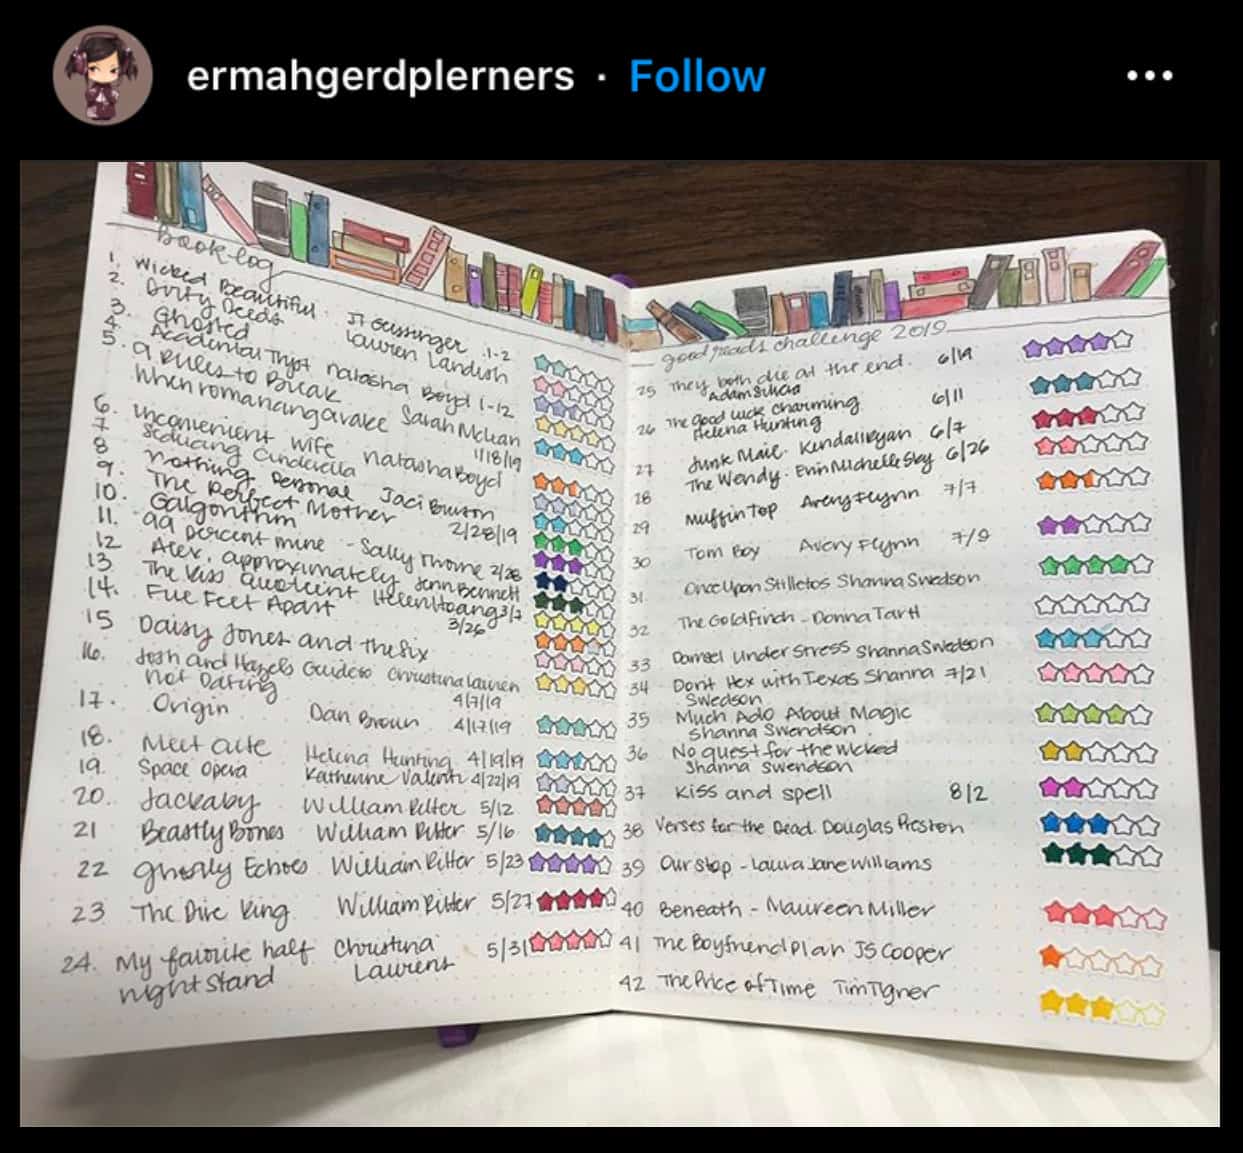 ermahgerdplerners · Follow
Book log
1. Wicked Beautiful. JT Geissinger 1-2
2. Dirty Deeds Lauren Landish
3. Ghosted
4. Accidental Tryst Natasha Boyd 1-12
5. 9 Rules to Break
When romancing a rake Sarah McLean
1/18/19
6. Inconvenient Wife Natasha Boyd
7 Seducing Cinderella
8 Nothing Personal Jaci Burton
9. The Perfect Mother
2/28/19
10. Galgorithm
11. 99 percent mine - Sally Thorne 2/28
12 Alex, approximately Jenn Bennett
13. The Kiss Quotient Helen Hoang 3/7
14. Five Feet Apart 3/26
15 Daisy Jones and the Six
16. Josh and Hazels Guide to Christina Lauren
Not Dating 4/7/19
17. Origin Dan Brown 4/17/19
18. Meet Cute Helena Hunting 4/19/19
19. Space Opera Katherine Valente 4/22/19
20. Jackaby William Ritter 5/12
21 Beastly Bones William Ritter 5/16
22 Ghostly Echoes William Ritter 5/23
23 The Dire King William Ritter 5/27
24. My favorite half Christina 5/31
night Stand Laurens
good reads challenge 2019
25 They both die at the end. 6/19
Adam Silvera
26 The good luck charming 6/11
Helena Hunting
27 Junk Mail. Kendall Ryan 6/7
28 The Wendy. Erin Michelle Sky 6/26
29 Muffin Top Avery Flynn 7/7
30 Tom Boy Avery Flynn 7/9
31. Once Upon Stilletos Shanna Swedson
32 The Goldfinch - Donna Tartt
33 Damsel Under Stress Shanna Swedson
34 Dont Hex with Texas Shanna 7/21
Swedson
35 Much Ado About Magic
Shanna Swendson
36 No quest for the wicked
Shanna Swendson
37 Kiss and spell 8/2
38 Verses for the Dead Douglas Preston
39 Our Stop - Laura Jane Williams
40 Beneath - Maureen Miller
41 The Boyfriend Plan JS Cooper
42 The Price of Time Tim Tigner